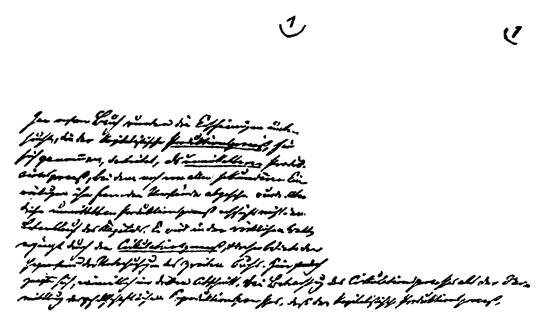 1 1
Im ersten Buch wurden die Erscheinungen unter-
sucht, die der kapitalistische Produktionsprozeß, für
sich genommen, darbietet, als unmittelbarer Produk-
tionsprozeß, bei dem noch von allen sekundären Ein-
wirkungen ihm fremder Umstände abgesehn wurde. Aber
dieser unmittelbare Produktionsprozeß erschöpft nicht den
Lebenslauf des Kapitals. Er wird in der wirklichen Welt
ergänzt durch den Cirkulationsprozeß, und dieser bildete den
Gegenstand der Untersuchungen des zweiten Buchs. Hier
zeigte sich, namentlich im dritten Abschnitt, bei Betrachtung des Cirkulationsprozesses als der Ver-
mittlung des gesellschaftlichen Reproduktionsprozesses, daß der kapitalistische Produktionsprozeß,